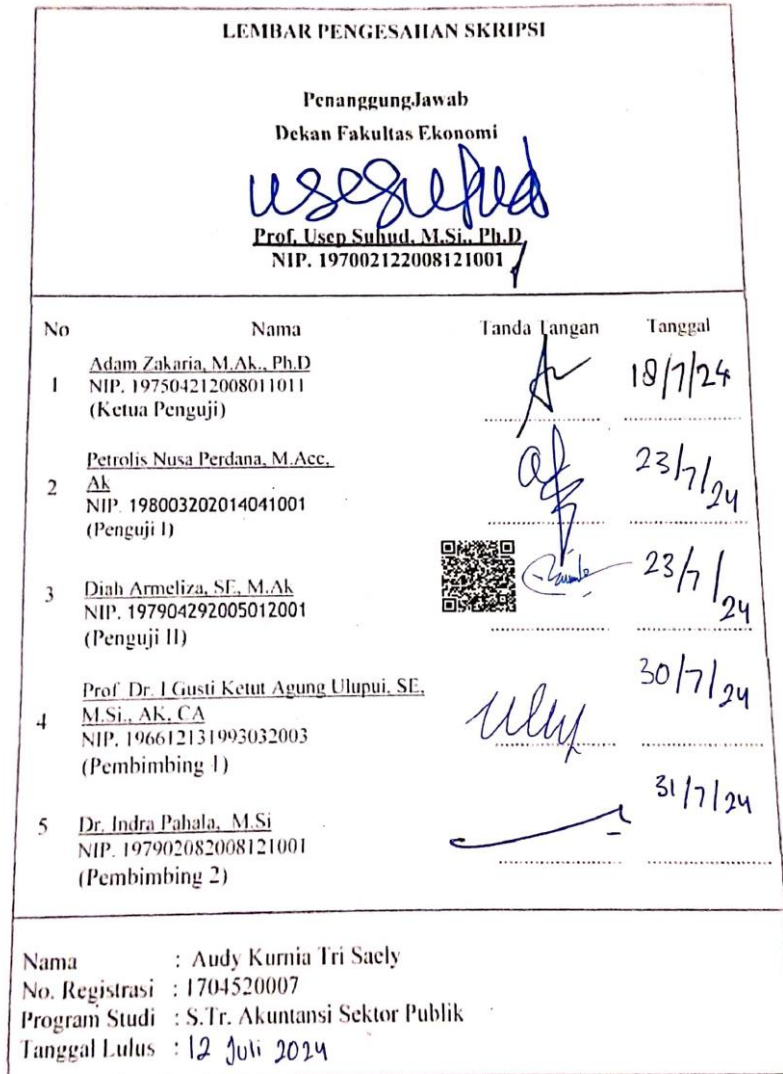 LEMBAR PENGESAHAN SKRIPSI
PenanggungJawab
Dekan Fakultas Ekonomi
Prof. Usep Suhud, M.Si., Ph.D
NIP. 197002122008121001
No Nama Tanda Tangan Tanggal
Adam Zakaria, M.Ak., Ph.D
1 NIP. 197504212008011011 18/7/24
(Ketua Penguji)
Petrolis Nusa Perdana, M.Acc,
2 Ak 23/7/24
NIP. 198003202014041001
(Penguji I)
3 Diah Armeliza, SE, M.Ak 23/7/24
NIP. 197904292005012001
(Penguji II)
Prof Dr. I Gusti Ketut Agung Ulupui, SE, 30/7/24
4 M.Si., AK, CA
NIP. 196612131993032003
(Pembimbing 1)
5 Dr. Indra Pahala, M.Si 31/7/24
NIP. 197902082008121001
(Pembimbing 2)
Nama : Audy Kurnia Tri Saely
No. Registrasi : 1704520007
Program Studi : S.Tr. Akuntansi Sektor Publik
Tanggal Lulus : 12 Juli 2024